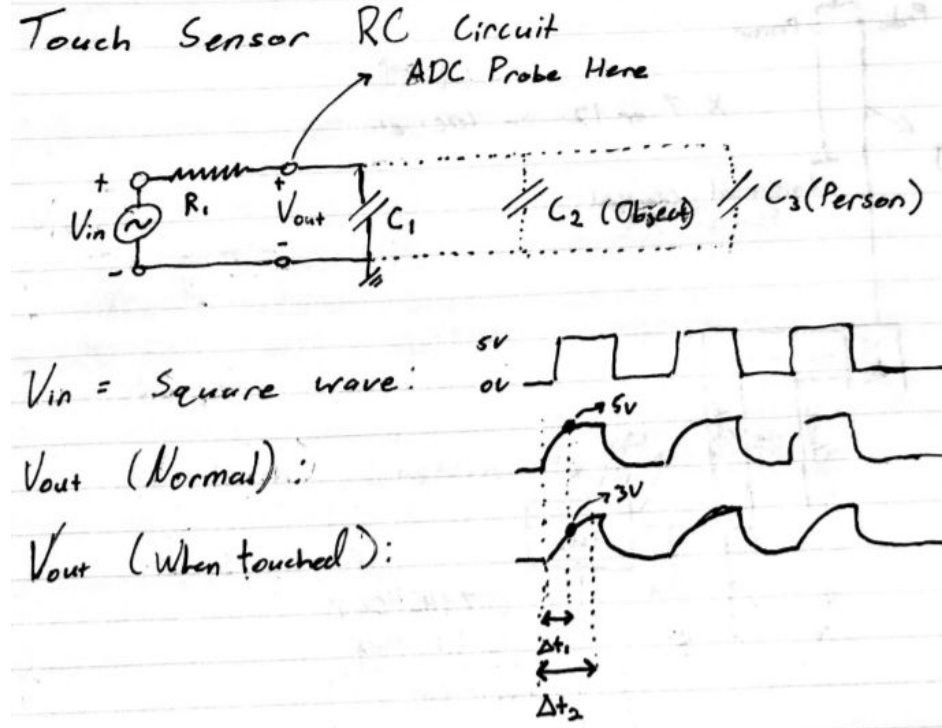 Touch Sensor RC Circuit
ADC Probe Here
+
R₁
+
Vin
Vout
C₁
C₂ (Object)
C₃ (Person)
-
-
5V
0V
Vin = Square wave:
5V
Vout (Normal):
3V
Vout (When touched):
Δt₁
Δt₂